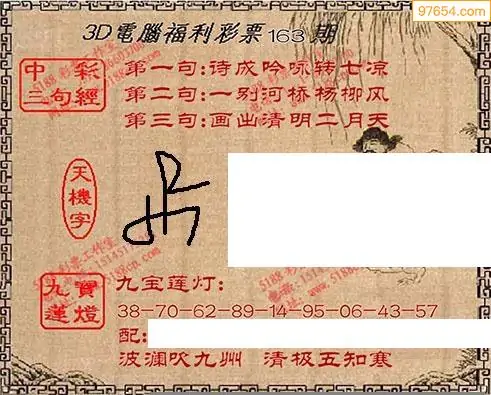 97654.com
3D電腦福利彩票163期
中彩
三句經
第一句:诗成吟咏转七凉
第二句:一别河桥杨柳风
第三句:画出清明二月天
天機字
九寶
蓮燈
九宝莲灯:
38-70-62-89-14-95-06-43-57
配:
波澜吹九州 清极五知寒